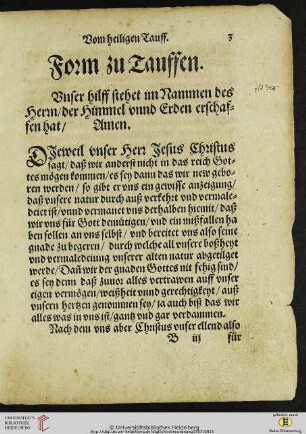 Vom heiligen Tauff. 3
Form zu Tauffen.
Vnser hilff stehet im Nammen des
Herrn/der Himmel vnnd Erden erschaf-
fen hat/ Amen.
DJeweil vnser Herr Jesus Christus
sagt/daß wir anderst nicht in das reich Got-
tes mögen kommen/es sey dann das wir new gebo-
ren werden/ so gibt er vns ein gewisse anzeigung/
daß vnsere natur durch auß verkehrt vnd vermale-
deiet ist/vnnd vermanet vns derhalben hiemit/daß
wir vns für Gott demütigen/vnd ein mißfallen ha
ben sollen an vns selbst/ vnd bereitet vns also seine
gnade zu begeren/ durch welche all vnsere boßheyt
vnd vermaledeiung vnserer alten natur abgetilget
werde/Dañ wir der gnaden Gottes nit fehig sind/
es sey denn daß zuuor alles vertrawen auff vnser
eigen vermögen/weißheit vnnd gerechtigkeyt/auß
vnsern hertzen genommen sey/ja auch biß das wir
alles was in vns ist/gantz vnd gar verdammen.
Nach dem vns aber Christus vnser ellend also
B iij für
UNIVERSITÄTS-
BIBLIOTHEK
HEIDELBERG
© Universitätsbibliothek Heidelberg